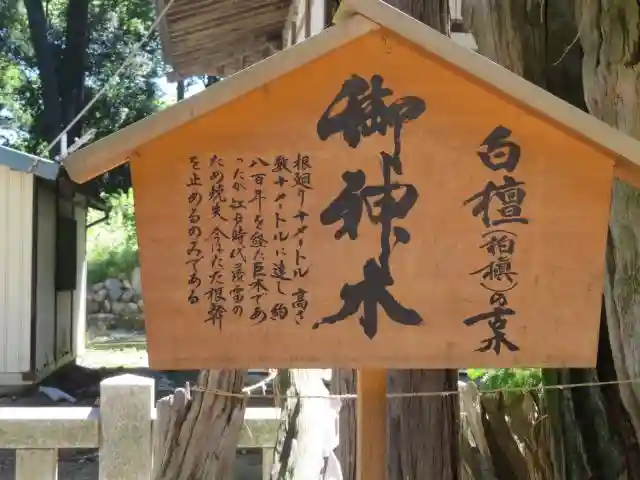 白檀(柏槇)の古木
御神木
根廻り十メートル 高さ
数十メートルに達し 約
八百年を経た巨木であ
ったが江戸時代 落雷の
ため焼失 今はただ根幹
を止めるのみである